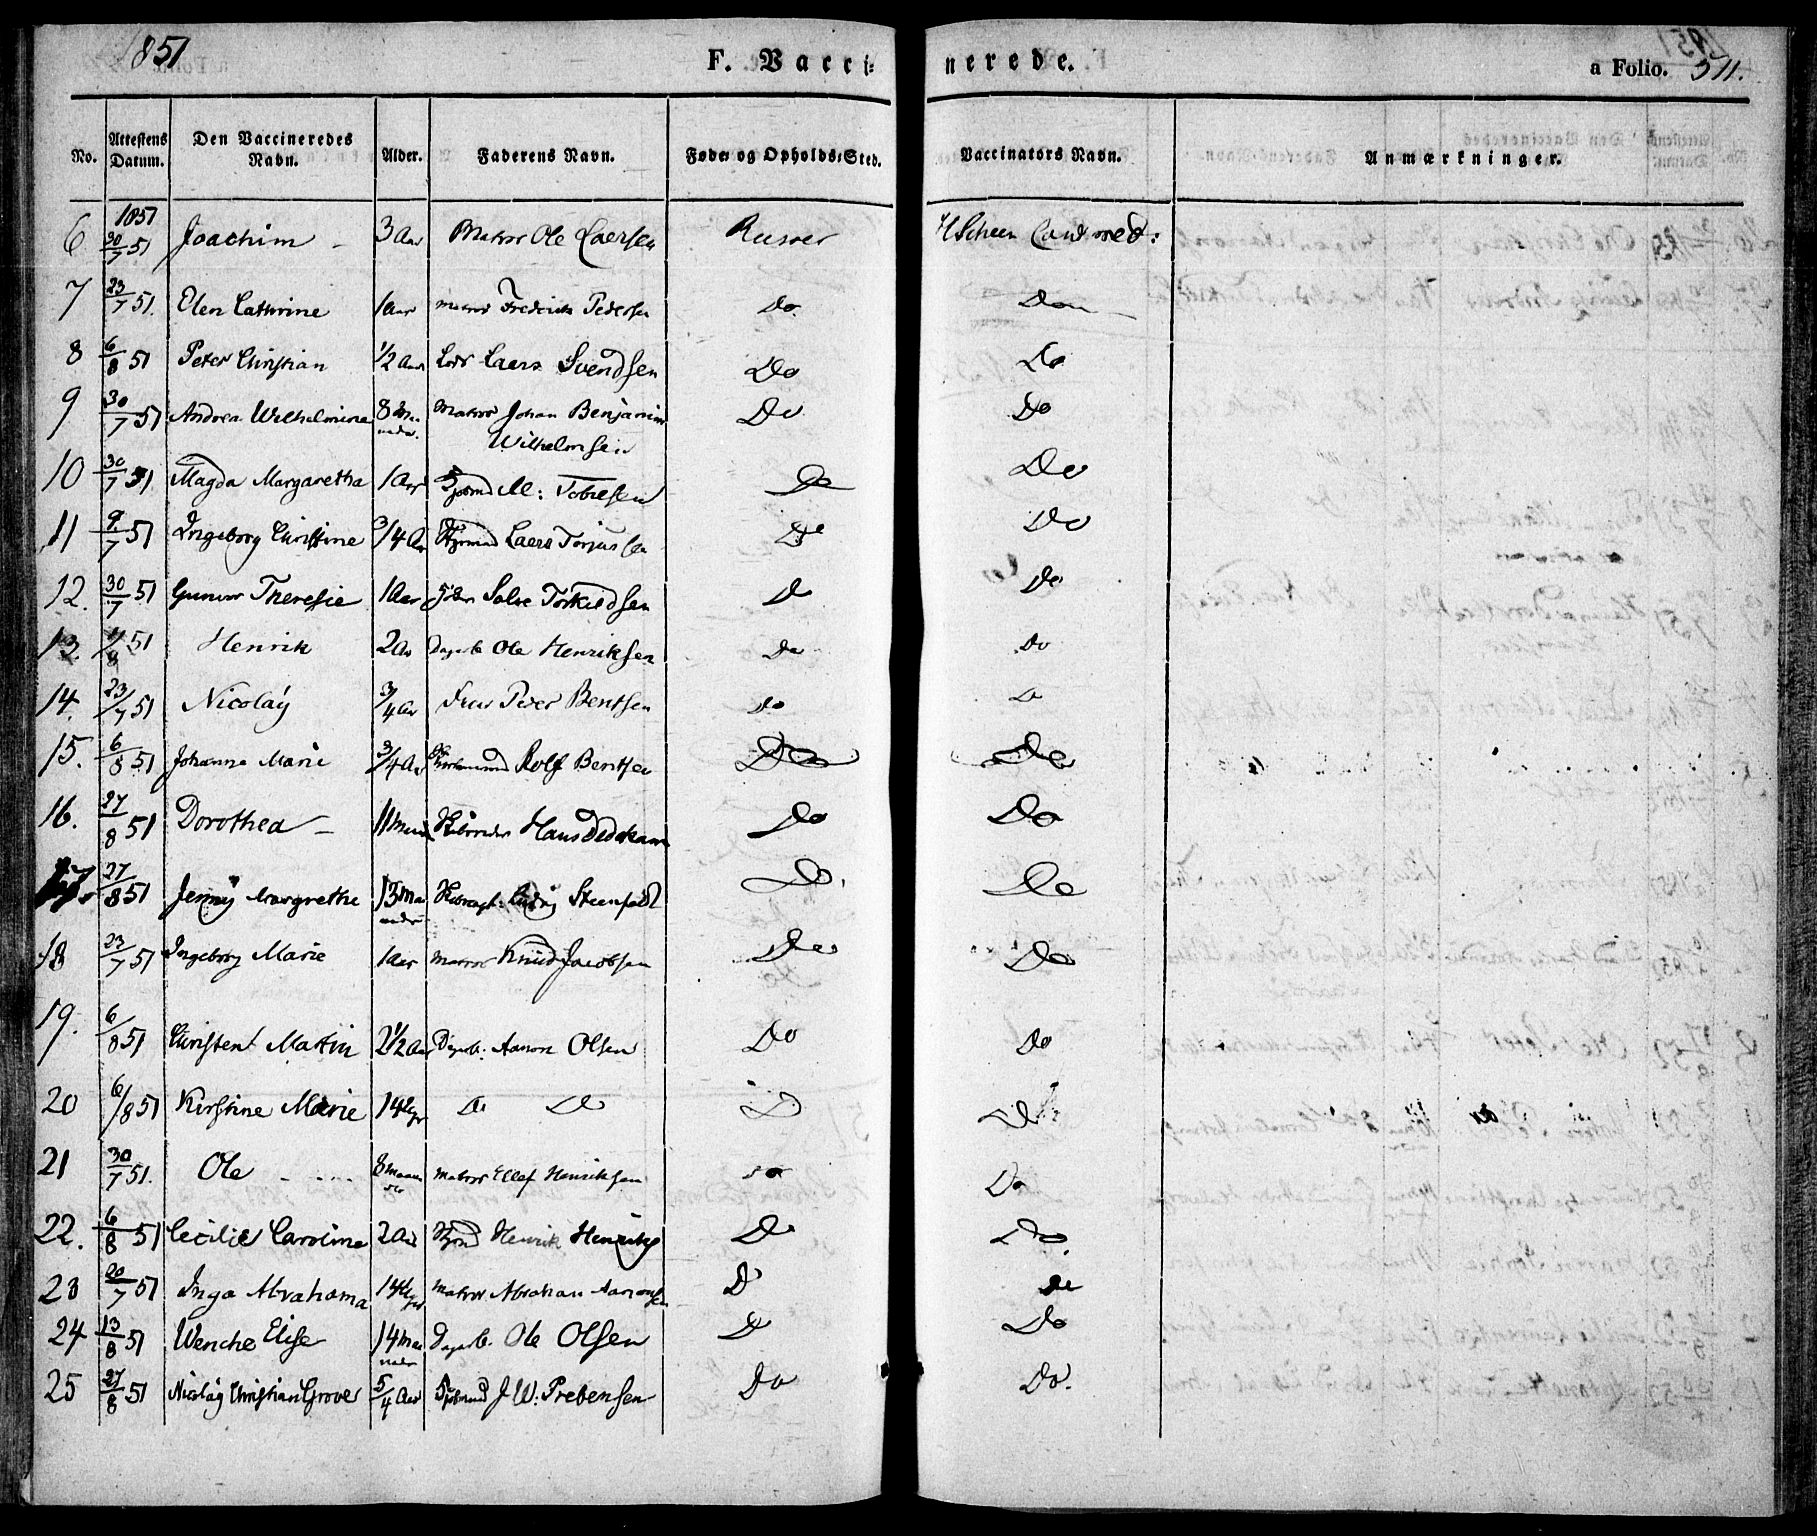 1851
1851
F. Vacci-
nerede.
a Folio. 311.
No. Attestens Datum. Den Vaccineredes Navn. Alder. Faderens Navn. Føde- og Opholds-Sted. Vaccinators Navn. Anmærkninger.
1851
6 30/7 51 Joachim 3 Aar Matros Ole Laersen Riisøer H Scheen Cand med:
7 23/7 51. Elen Cathrine 1 Aar Matros Frederik Pedersen Do. Do
8 6/8 51 Peter Christian 1/2 Aar Lods Laers Svendsen Do Do
9 30/7 51 Andrea Wilhelmine 8 Maaneder. Matros Johan Benjamin Do Do
Wilhelmsen
10 30/7 51 Magda Margaretha 1 Aar M: Tobiesen Do Do
11 9/7 51 Ingeborg Christine 3/4 Aar Laers Torjussen Do Do
12. 30/7 51 Gunvor Theresie 1 Aar Salve Torkildsen Do Do
13 51 Henrik 2 Aar Dagarb Ole Henriksen Do Do
14. 23/7 51 Nicolay 3/4 Aar Peder Bentsen Do Do
15. 6/8 51 Johanne Marie 3/4 Aar Rolf Bentsen Do Do
16. 27/8 51 Dorothea 11 Maan Skibsreder Hans Dedekam Do Do
17. 27/8 51 Jenny Margrethe 13 Maaneder Steenfeldt Do. Do
18 23/7 51 Ingeborg Marie 1 Aar Matros Knud Jacobsen Do Do
19. 6/8 51 Christen Martin 2 1/2 Aar Dagarb: Aanon Olsen Do Do
20 6/8 51 Kirstine Marie 14 Dgr Do Do Do Do
21 30/7 51. Ole 8 Maaneder Matros Ellef Henriksen Do Do
22. 6/8 51 Cecilie Caroline 2 Aar Henrik Do Do.
23 20/7 51 Inga Abrahama 14 Dger Matros Abraham Aanonsen Do Do
24 13/8 51 Wenche Elise 14 Maaneder Dagarb. Ole Olsen Do Do
25 27/8 51 Nicolay Christian Grove 5/4 Aar Sjømand J W. Prebensen Do Do.